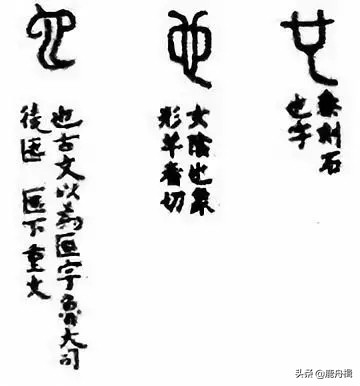 秦刻石
也字
女陰也象
形羊者切
也古文以為匜字魯大司
徒匜 匜下重文
头条 @鹿舟